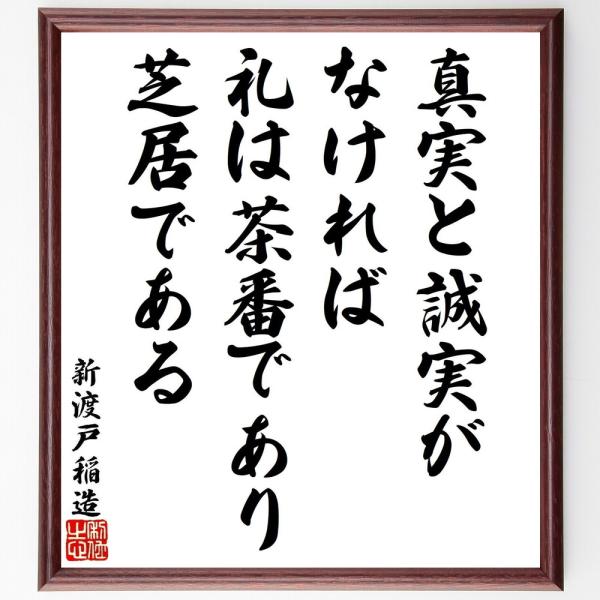 真実と誠実が
なければ
礼は茶番であり
芝居である
新渡戸稲造